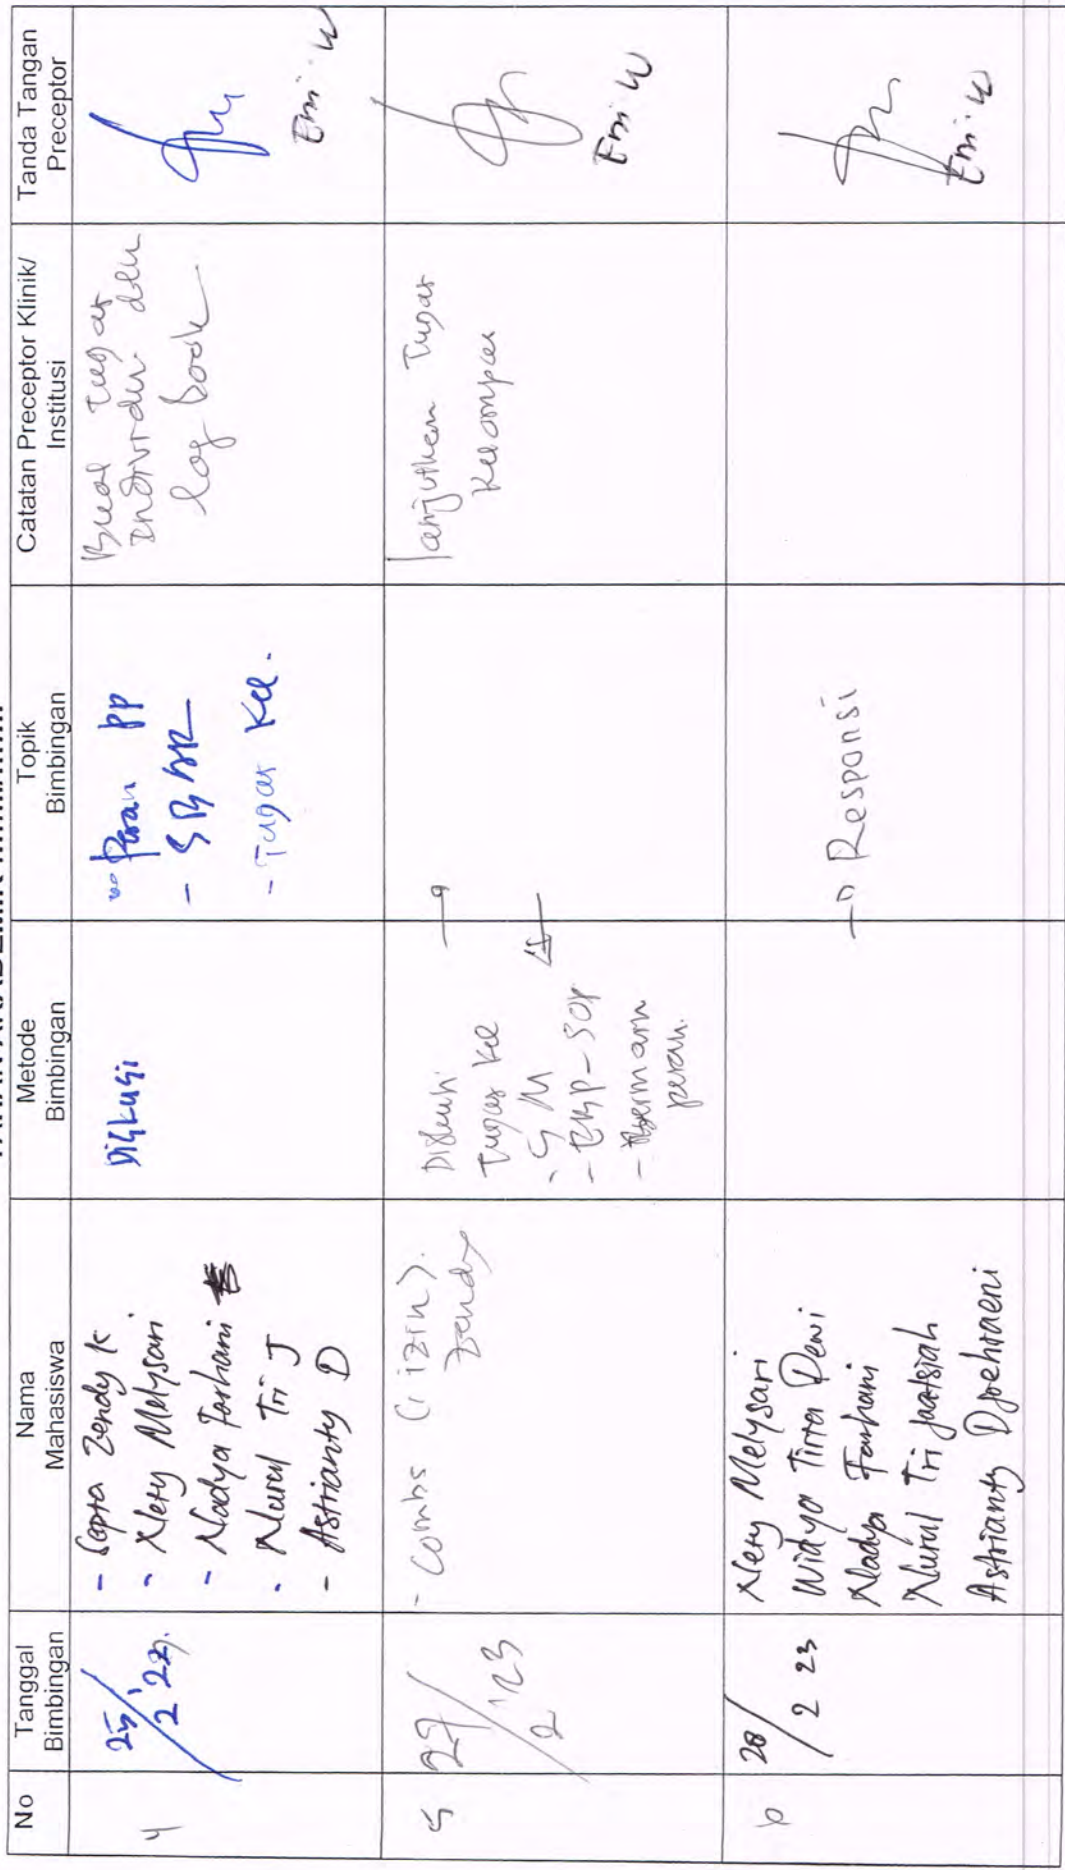 No
Tanggal
Bimbingan
Nama
Mahasiswa
Metode
Bimbingan
Topik
Bimbingan
Catatan Preceptor Klinik/
Institusi
Tanda Tangan
Preceptor
4
25/2 '23.
- Septa Zendy K
- Nery Melysari
- Nadya Farhani
- Nurul Tri J
- Astrianty D
Diskusi
Peran PP
- SBAR
- Tugas Kel.
Buat tugas
Individu dan
log book
Emi W
5
27/2 '23
- Combs (izin).
Zendy
Diskusi
Tugas Kel
- SOP
- Bermain
peran.
lanjutkan Tugas
Kelompok
Emi W
6
28/2 23
Nery Melysari
Widya Tirta Dewi
Nadya Farhani
Nurul Tri
Astrianty Djoehraeni
→ Responsi
Emi W